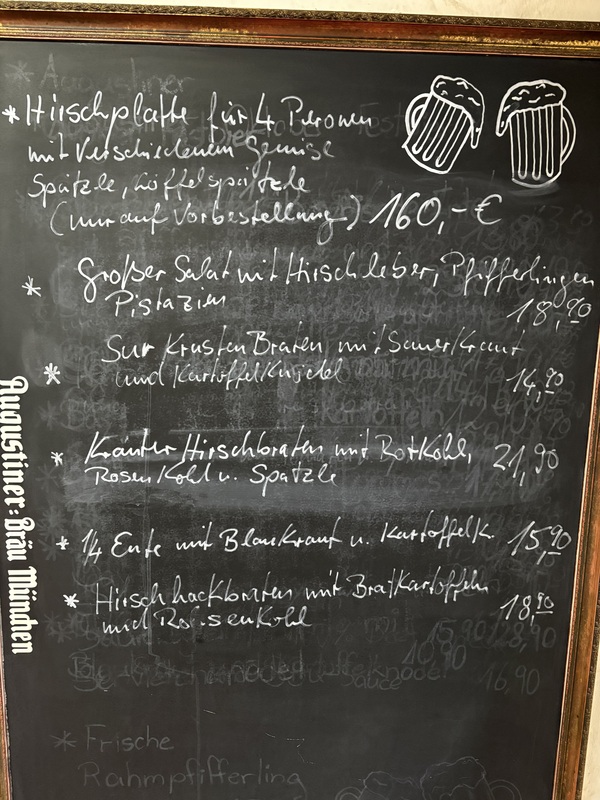 *Hirschplatte für 4 Personen
mit Verschiedenem Gemüse
Spätzle, Löffelspätzle
(nur auf Vorbestellung) 160,-€
* Großer Salat mit Hirschleber, Pfifferlingen
Pistazien 18,90
Sur Krusten Braten mit Sauerkraut
* und Kartoffelknödel 14,90
* Kräuter Hirschbraten mit Rotkohl, 21,90
Rosenkohl u. Spätzle
* 1/4 Ente mit Blaukraut u. Kartoffelk. 15,90
* Hirschhackbraten mit Bratkartoffeln
und Rosenkohl 18,90
Augustiner-Bräu München
15,90
10,90
16,90
* Frische
Rahmpfifferling